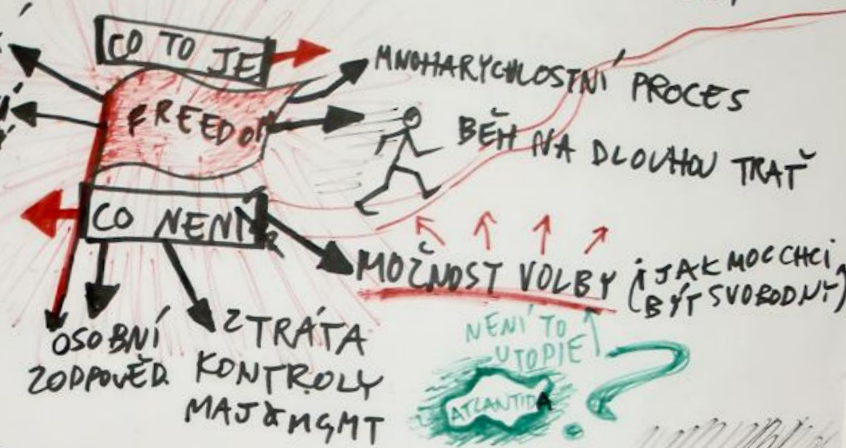 CO TO JE
FREEDOM
CO NENÍ
MNOHARYCHLOSTNÍ PROCES
BĚH NA DLOUHOU TRAŤ
MOŽNOST VOLBY
(I JAK MOC CHCI
BÝT SVOBODNÝ)
OSOBNÍ
ZODPOVĚD.
ZTRÁTA
KONTROLY
MAJ & MGMT
NENÍ TO
UTOPIE
ATLANTIDA
?